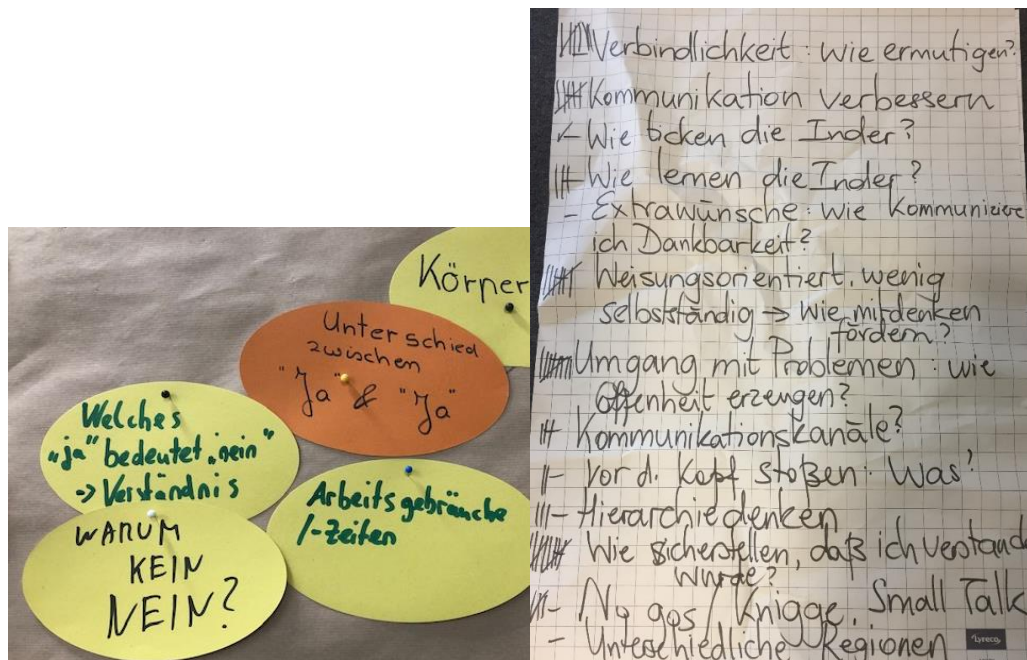 Körper
Unterschied
zwischen
"Ja" & "Ja"
Welches
„ja" bedeutet „nein"
-> Verständnis
WARUM
KEIN
NEIN?
Arbeitsgebräuche
/-Zeiten
Verbindlichkeit: Wie ermutigen?
Kommunikation verbessern
- Wie ticken die Inder?
- Wie lernen die Inder?
- Extrawünsche: Wie kommuniziere
ich Dankbarkeit?
Weisungsorientiert, wenig
selbstständig -> Wie mitdenken
fördern?
Umgang mit Problemen: wie
Offenheit erzeugen?
Kommunikationskanäle?
- vor d. Kopf stoßen: Was?
- Hierarchiedenken
Wie sicherstellen, daß ich verstand
wurde?
- No gos / Knigge, Small Talk
- Unterschiedliche Regionen
Lyreco